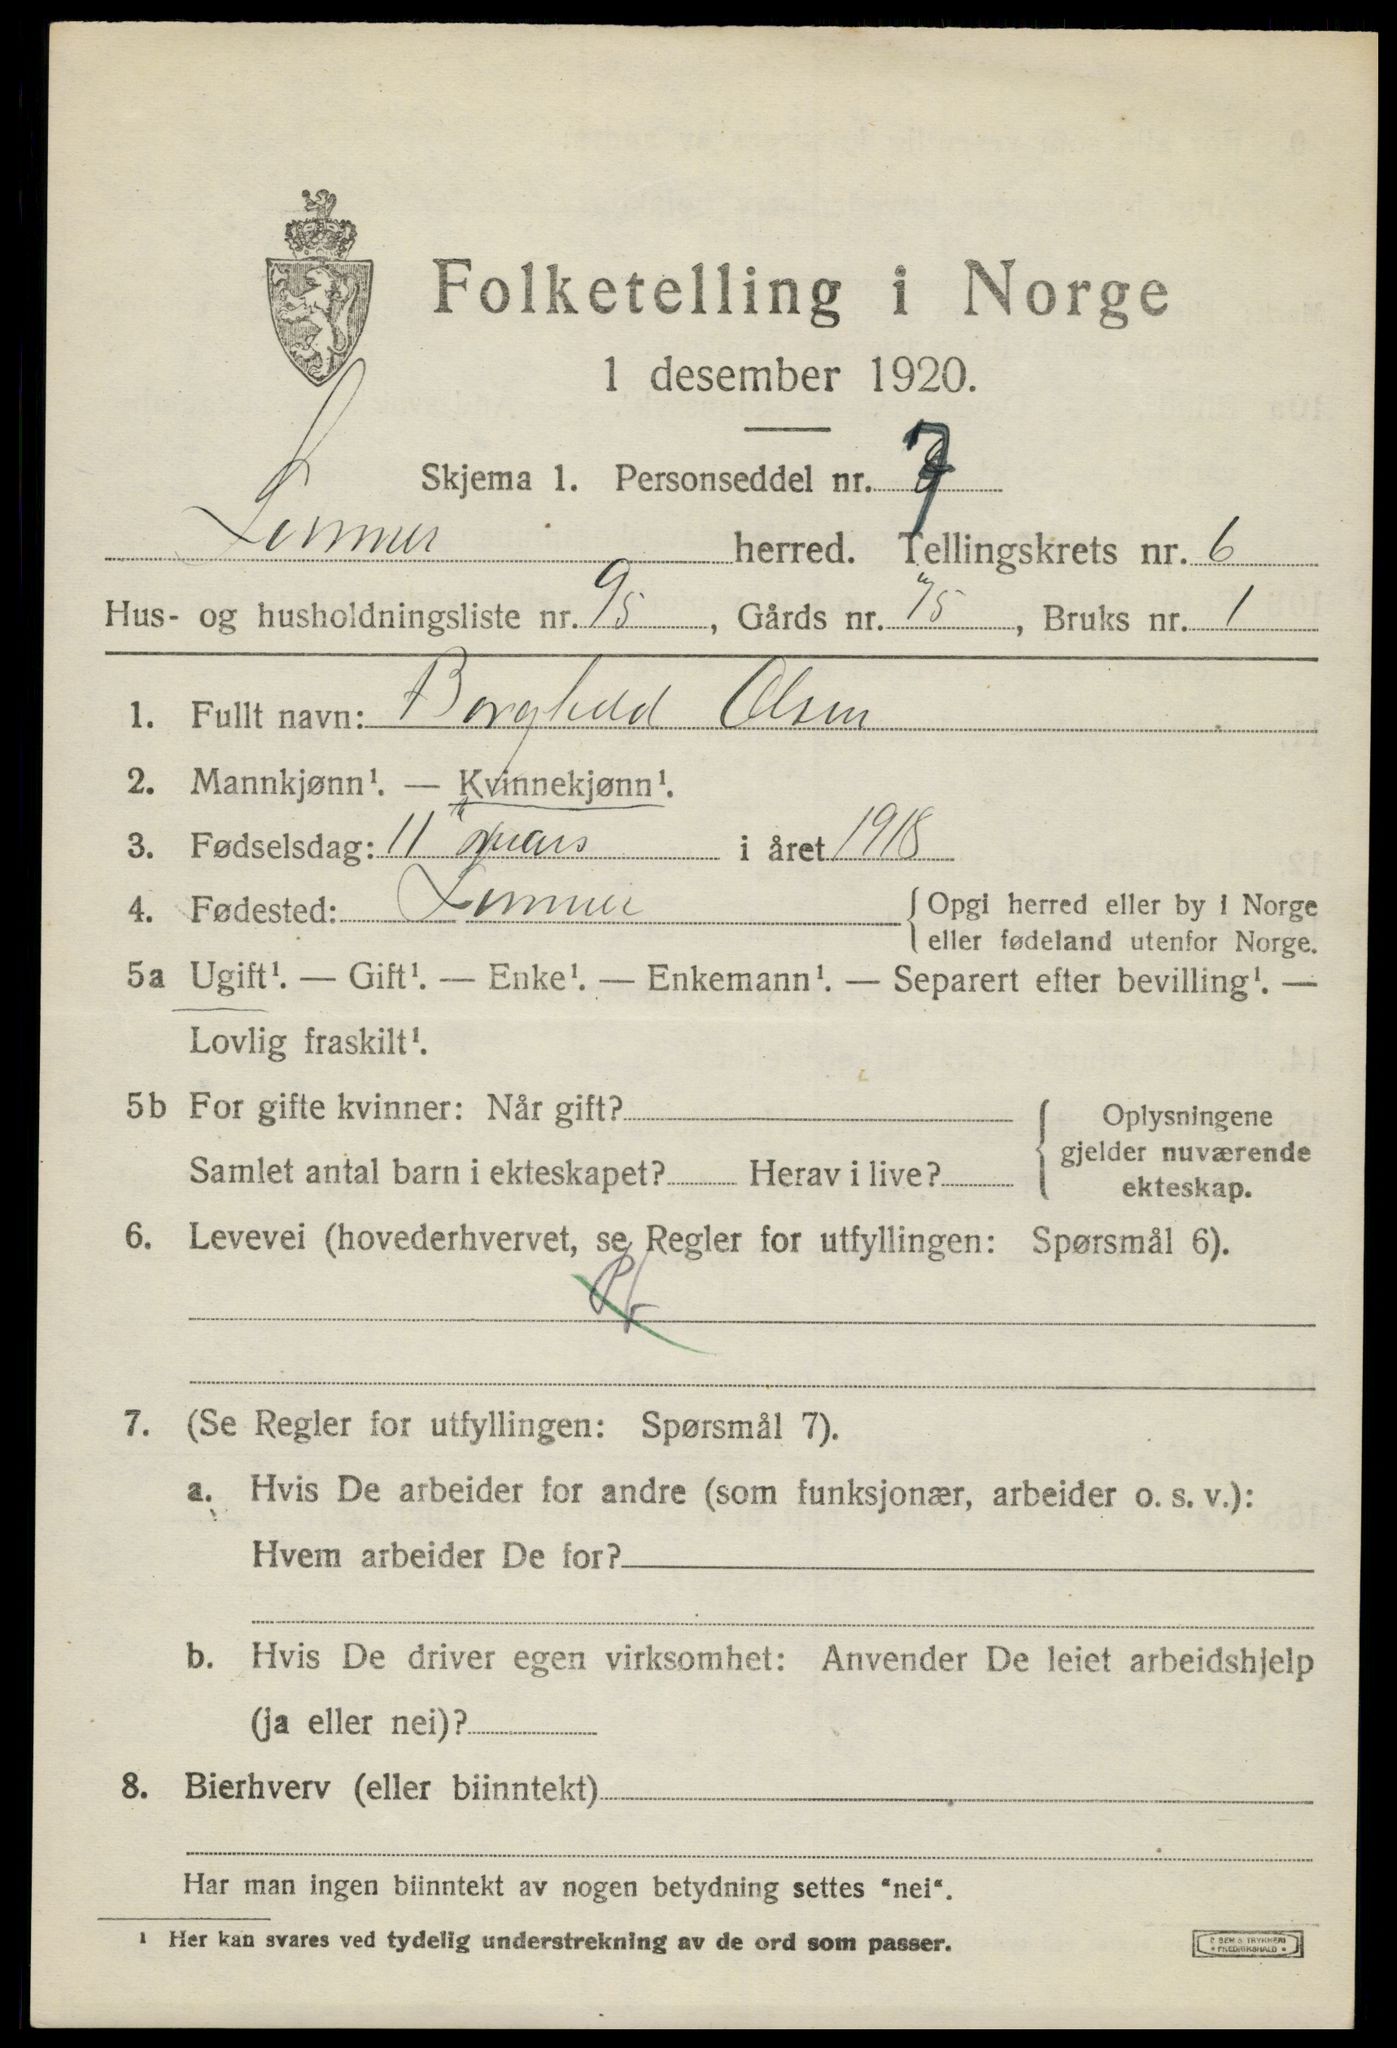 Folketelling i Norge
1 desember 1920.
Skjema 1. Personseddel nr. 7
Lommer herred. Tellingskrets nr. 6
Hus- og husholdningsliste nr. 95, Gårds nr. 75, Bruks nr. 1
1. Fullt navn: Borghild Olsen
2. Mannkjønn¹. — Kvinnekjønn¹.
3. Fødselsdag: 11 mars i året 1918
4. Fødested: Lommer { Opgi herred eller by i Norge
eller fødeland utenfor Norge.
5a Ugift¹. — Gift¹. — Enke¹. — Enkemann¹. — Separert efter bevilling¹. —
Lovlig fraskilt¹.
5b For gifte kvinner: Når gift?
Samlet antal barn i ekteskapet? Herav i live?
{ Oplysningene
gjelder nuværende
ekteskap.
6. Levevei (hovederhvervet, se Regler for utfyllingen: Spørsmål 6).
7. (Se Regler for utfyllingen: Spørsmål 7).
a. Hvis De arbeider for andre (som funksjonær, arbeider o. s. v.):
Hvem arbeider De for?
b. Hvis De driver egen virksomhet: Anvender De leiet arbeidshjelp
(ja eller nei)?
8. Bierhverv (eller biinntekt)
Har man ingen biinntekt av nogen betydning settes "nei".
¹ Her kan svares ved tydelig understrekning av de ord som passer.
TRYKKERI
FREDRIKSHALD